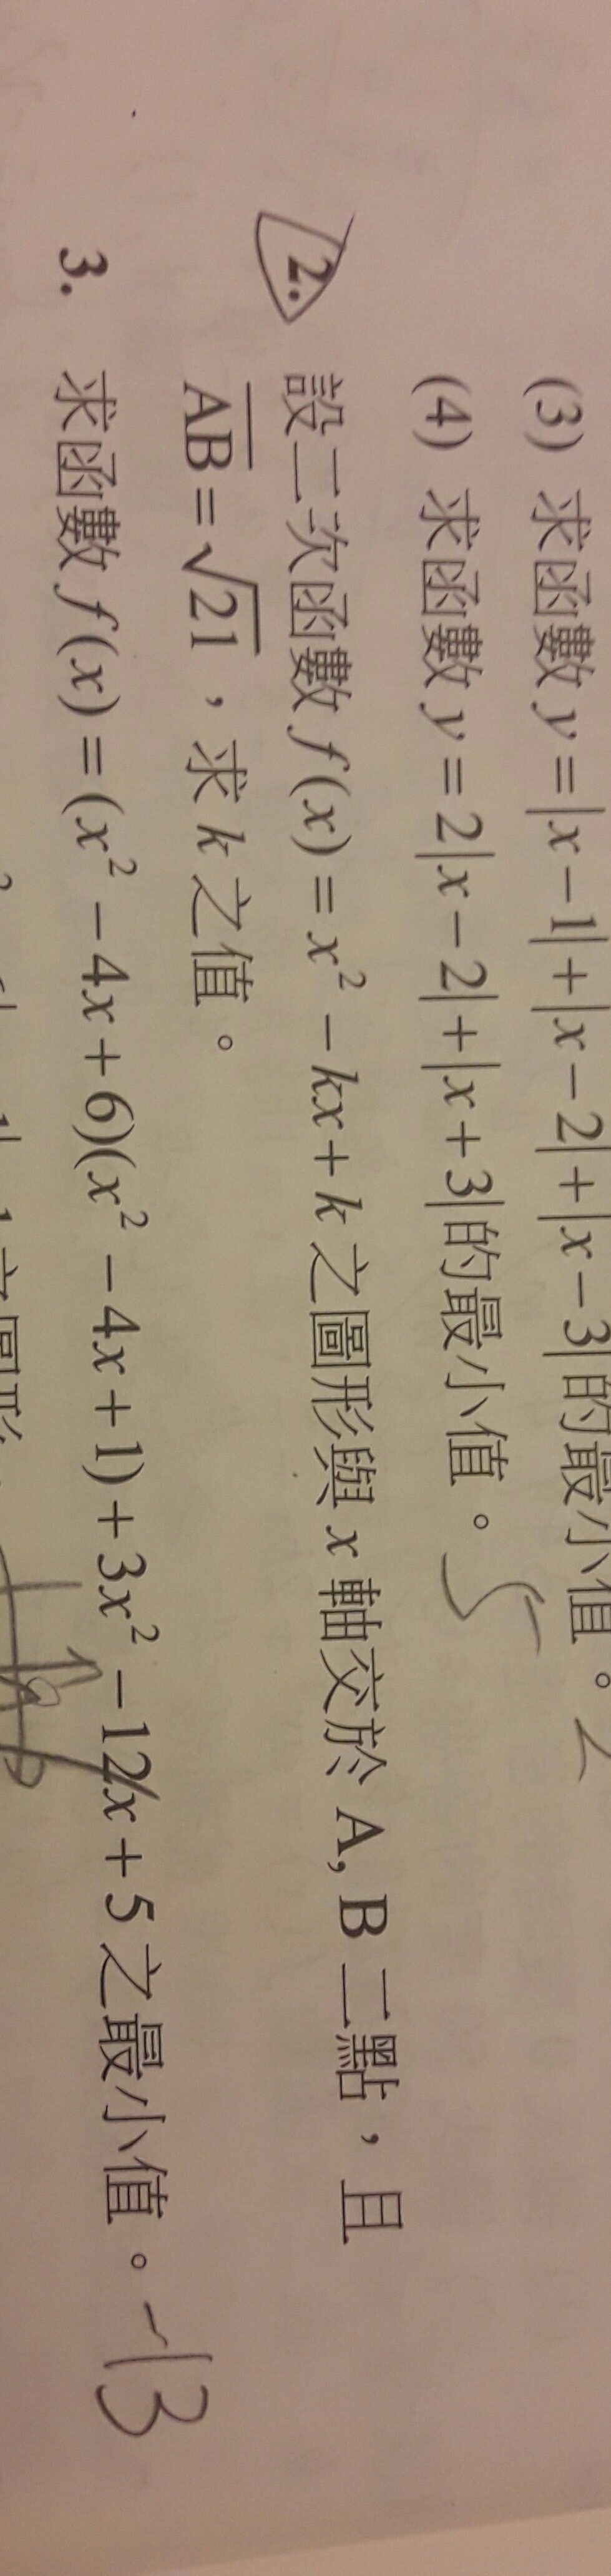 (3) 求函數 y=|x-1|+|x-2|+|x-3| 的最小值。2
(4) 求函數 y=2|x-2|+|x+3| 的最小值。5
2. 設二次函數 f(x)=x²-kx+k 之圖形與 x 軸交於 A, B 二點，且
AB=√21，求 k 之值。
3. 求函數 f(x)=(x²-4x+6)(x²-4x+1)+3x²-12x+5 之最小值。-13